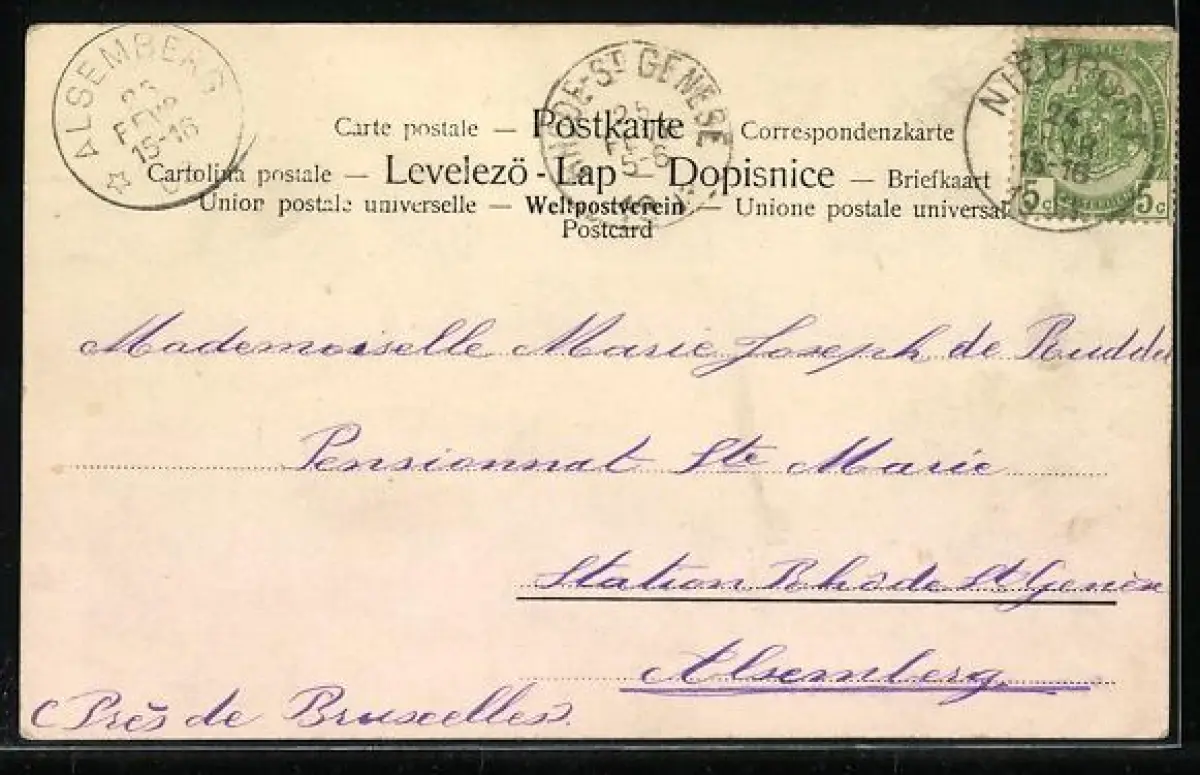 ALSEMBERG
25
FEVR
15-16
RHODE-ST GENESE
25
NIEUPORT
24
15-16
5c 5c
Carte postale — Postkarte — Correspondenzkarte
Cartolina postale — Levelező-Lap — Dopisnice — Briefkaart
Union postale universelle — Weltpostverein — Unione postale universal
Postcard
Mademoiselle Marie Joseph de Rudde
Pensionnat Ste Marie
Station Rhôde St Genèse
Alsemberg
(Près de Bruxelles)